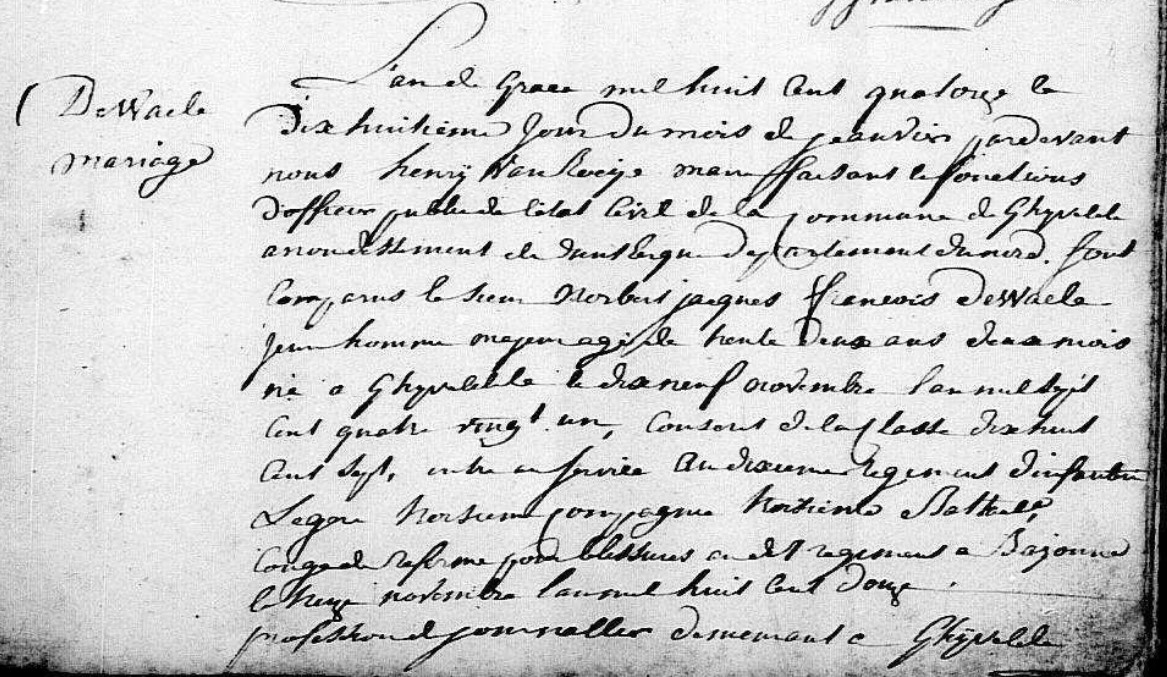 DeWaele
mariage
L'an de Grace mil huit Cent quatorze le
Dix huitieme Jour Du mois de jeanvier pardevant
nous henrÿ Van maire ffaisant le fonctions
D'officier publie de l'etat Civil de la Commune de Ghyvelde
arrondissement de Dunkerque departement du nord. sont
Comparus le sieur Norbert jacques francois DeWaele
jeune homme majeur agé de trente Deux ans deux mois
né a Ghyvelde le dix neuf novembre l'an mil sept
Cent quatre vingt un, Conscrit de la Classe dix huit
Cent Sept, entre au service au dixieme regiment d'infantrie
Legere troisieme Compagnie troisieme
Conge de reforme pour blessures au dit regiment a Bajonne
le treize novembre l'an mil huit Cent douze.
profession de journallier demeurant a Ghÿvelde